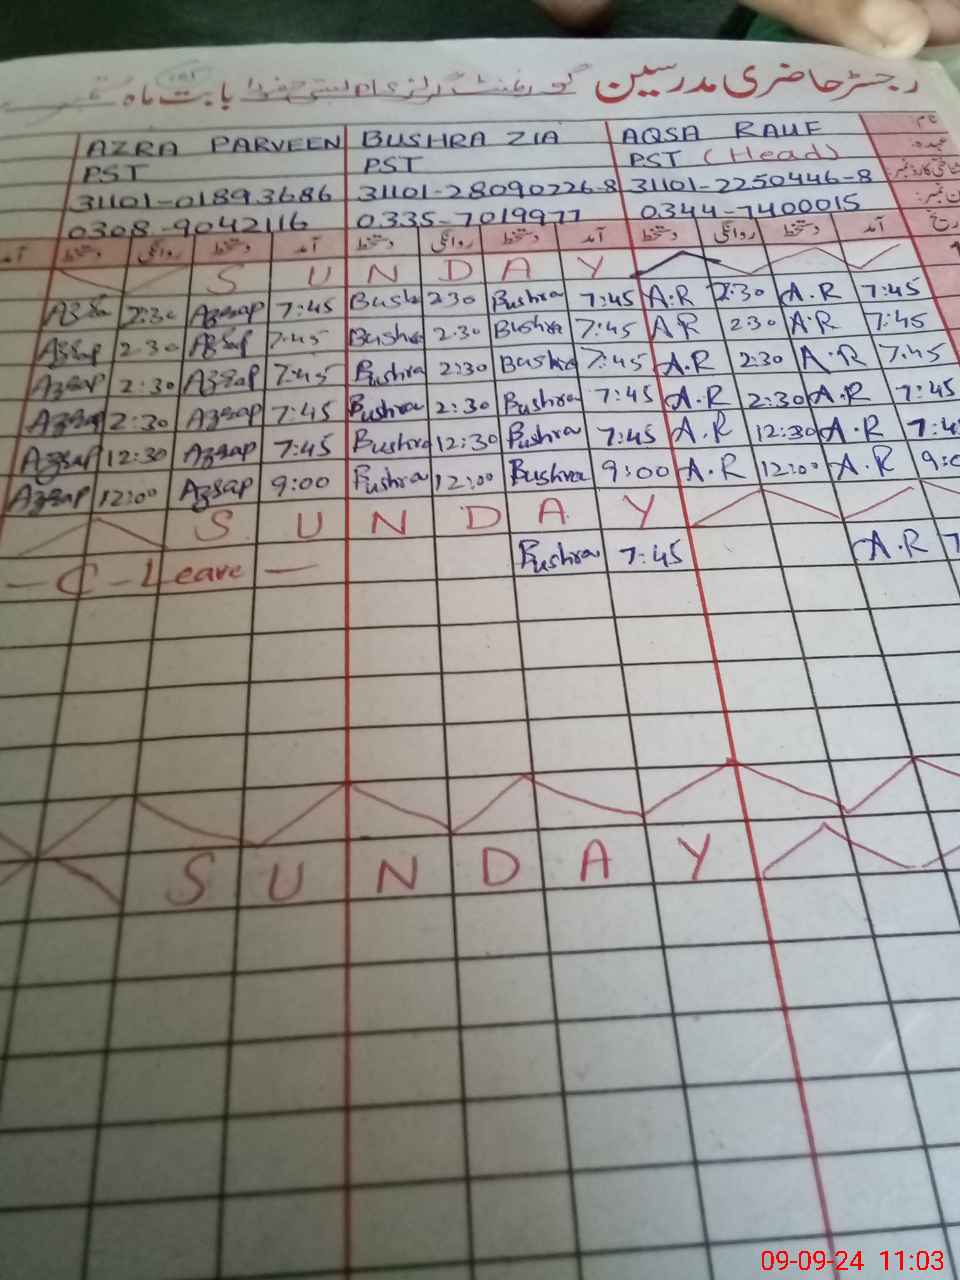 رجسٹر حاضری مدرسین گورنمنٹ گرلز بابت ماہ
AZRA PARVEEN BUSHRA ZIA AQSA RAUF نام
PST PST PST (Head) عہدہ
31101-01893686 31101-28090226-8 31101-2250446-8
0308-9042116 0335-7019977 0344-7400015
آمد دستخط روانگی دستخط آمد دستخط روانگی دستخط آمد دستخط روانگی دستخط آمد
S U N D A Y
2:30 Azsap 7:45 Bush 2:30 Bushra 7:45 A.R 2:30 A.R 7:45
Azsap 2:30 Azsap 7:45 Bushra 2:30 Bushra 7:45 A.R 2:30 A.R 7:45
Azsap 2:30 Azsap 7:45 Bushra 2:30 Bushra 7:45 A.R 2:30 A.R 7:45
Azsap 2:30 Azsap 7:45 Bushra 2:30 Bushra 7:45 A.R 2:30 A.R 7:45
Azsap 12:30 Azsap 7:45 Bushra 12:30 Bushra 7:45 A.R 12:30 A.R 7:4
Azsap 12:00 Azsap 9:00 Bushra 12:00 Bushra 9:00 A.R 12:00 A.R 9:0
S U N D A Y
- C - Leave - Bushra 7:45 A.R 7
S U N D A Y
09-09-24 11:03